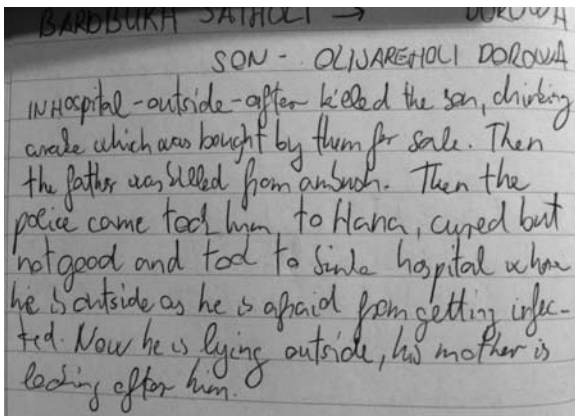 BARDBUKA SATHOLI → DOROWA
SON - OLIJAREHOLI DOROWA
IN Hospital-outside-after killed the son, drinking
arake which was bought by them for sale. Then
the father was killed from ambush. Then the
police came took him, to Hana, cured but
not good and took to Sinla hospital where
he is outside as he is afraid from getting infec-
ted. Now he is lying outside, his mother is
looking after him.